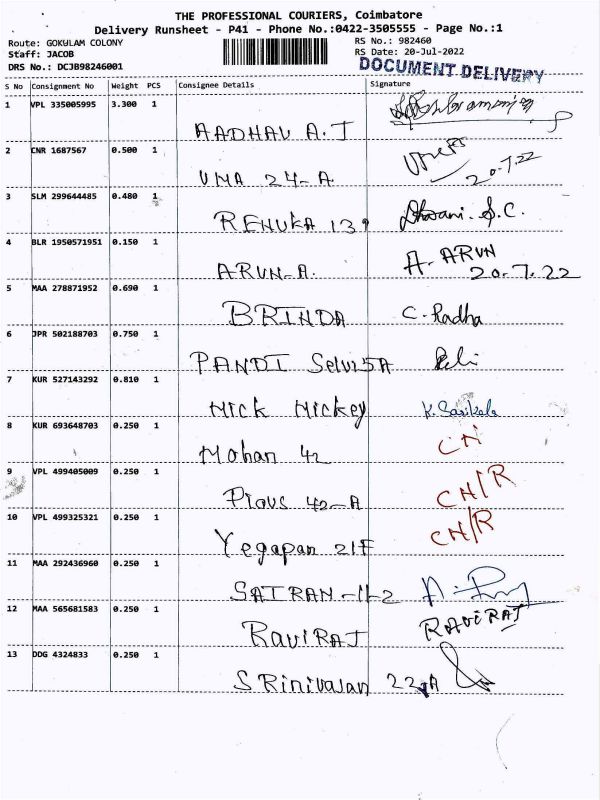 THE PROFESSIONAL COURIERS, Coimbatore
Delivery Runsheet - P41 - Phone No.:0422-3505555 - Page No.:1
Route: GOKULAM COLONY RS No.: 982460
Staff: JACOB RS Date: 20-Jul-2022
DRS No.: DCJB98246001 DOCUMENT DELIVERY
S No Consignment No Weight PCS Consignee Details Signature
1 VPL 335005995 3.300 1
AADHAV A.J
2 CNR 1687567 0.500 1
UMA 24-A 20.7.22
3 SLM 299644485 0.480 1
RENUKA 139 Dhvani. S.C.
4 BLR 1950571951 0.150 1
ARUN-A. A. ARUN
20.7.22
5 MAA 278871952 0.690 1
BRINDA C. Radha
6 JPR 502188703 0.750 1
PANDI Selvi 5A
7 KUR 527143292 0.810 1
Mick Mickey K. Sasikala
8 KUR 693648703 0.250 1
Mohan 42 CN
9 VPL 499405009 0.250 1
Pious 42-A CN/R
10 VPL 499325321 0.250 1
Yegapan 21F CN/R
11 MAA 292436960 0.250 1
SAIRAN -11-2
12 MAA 565681583 0.250 1
RaviRAJ RAVIRAJ
13 DDG 4324833 0.250 1
SRinivasan 22A